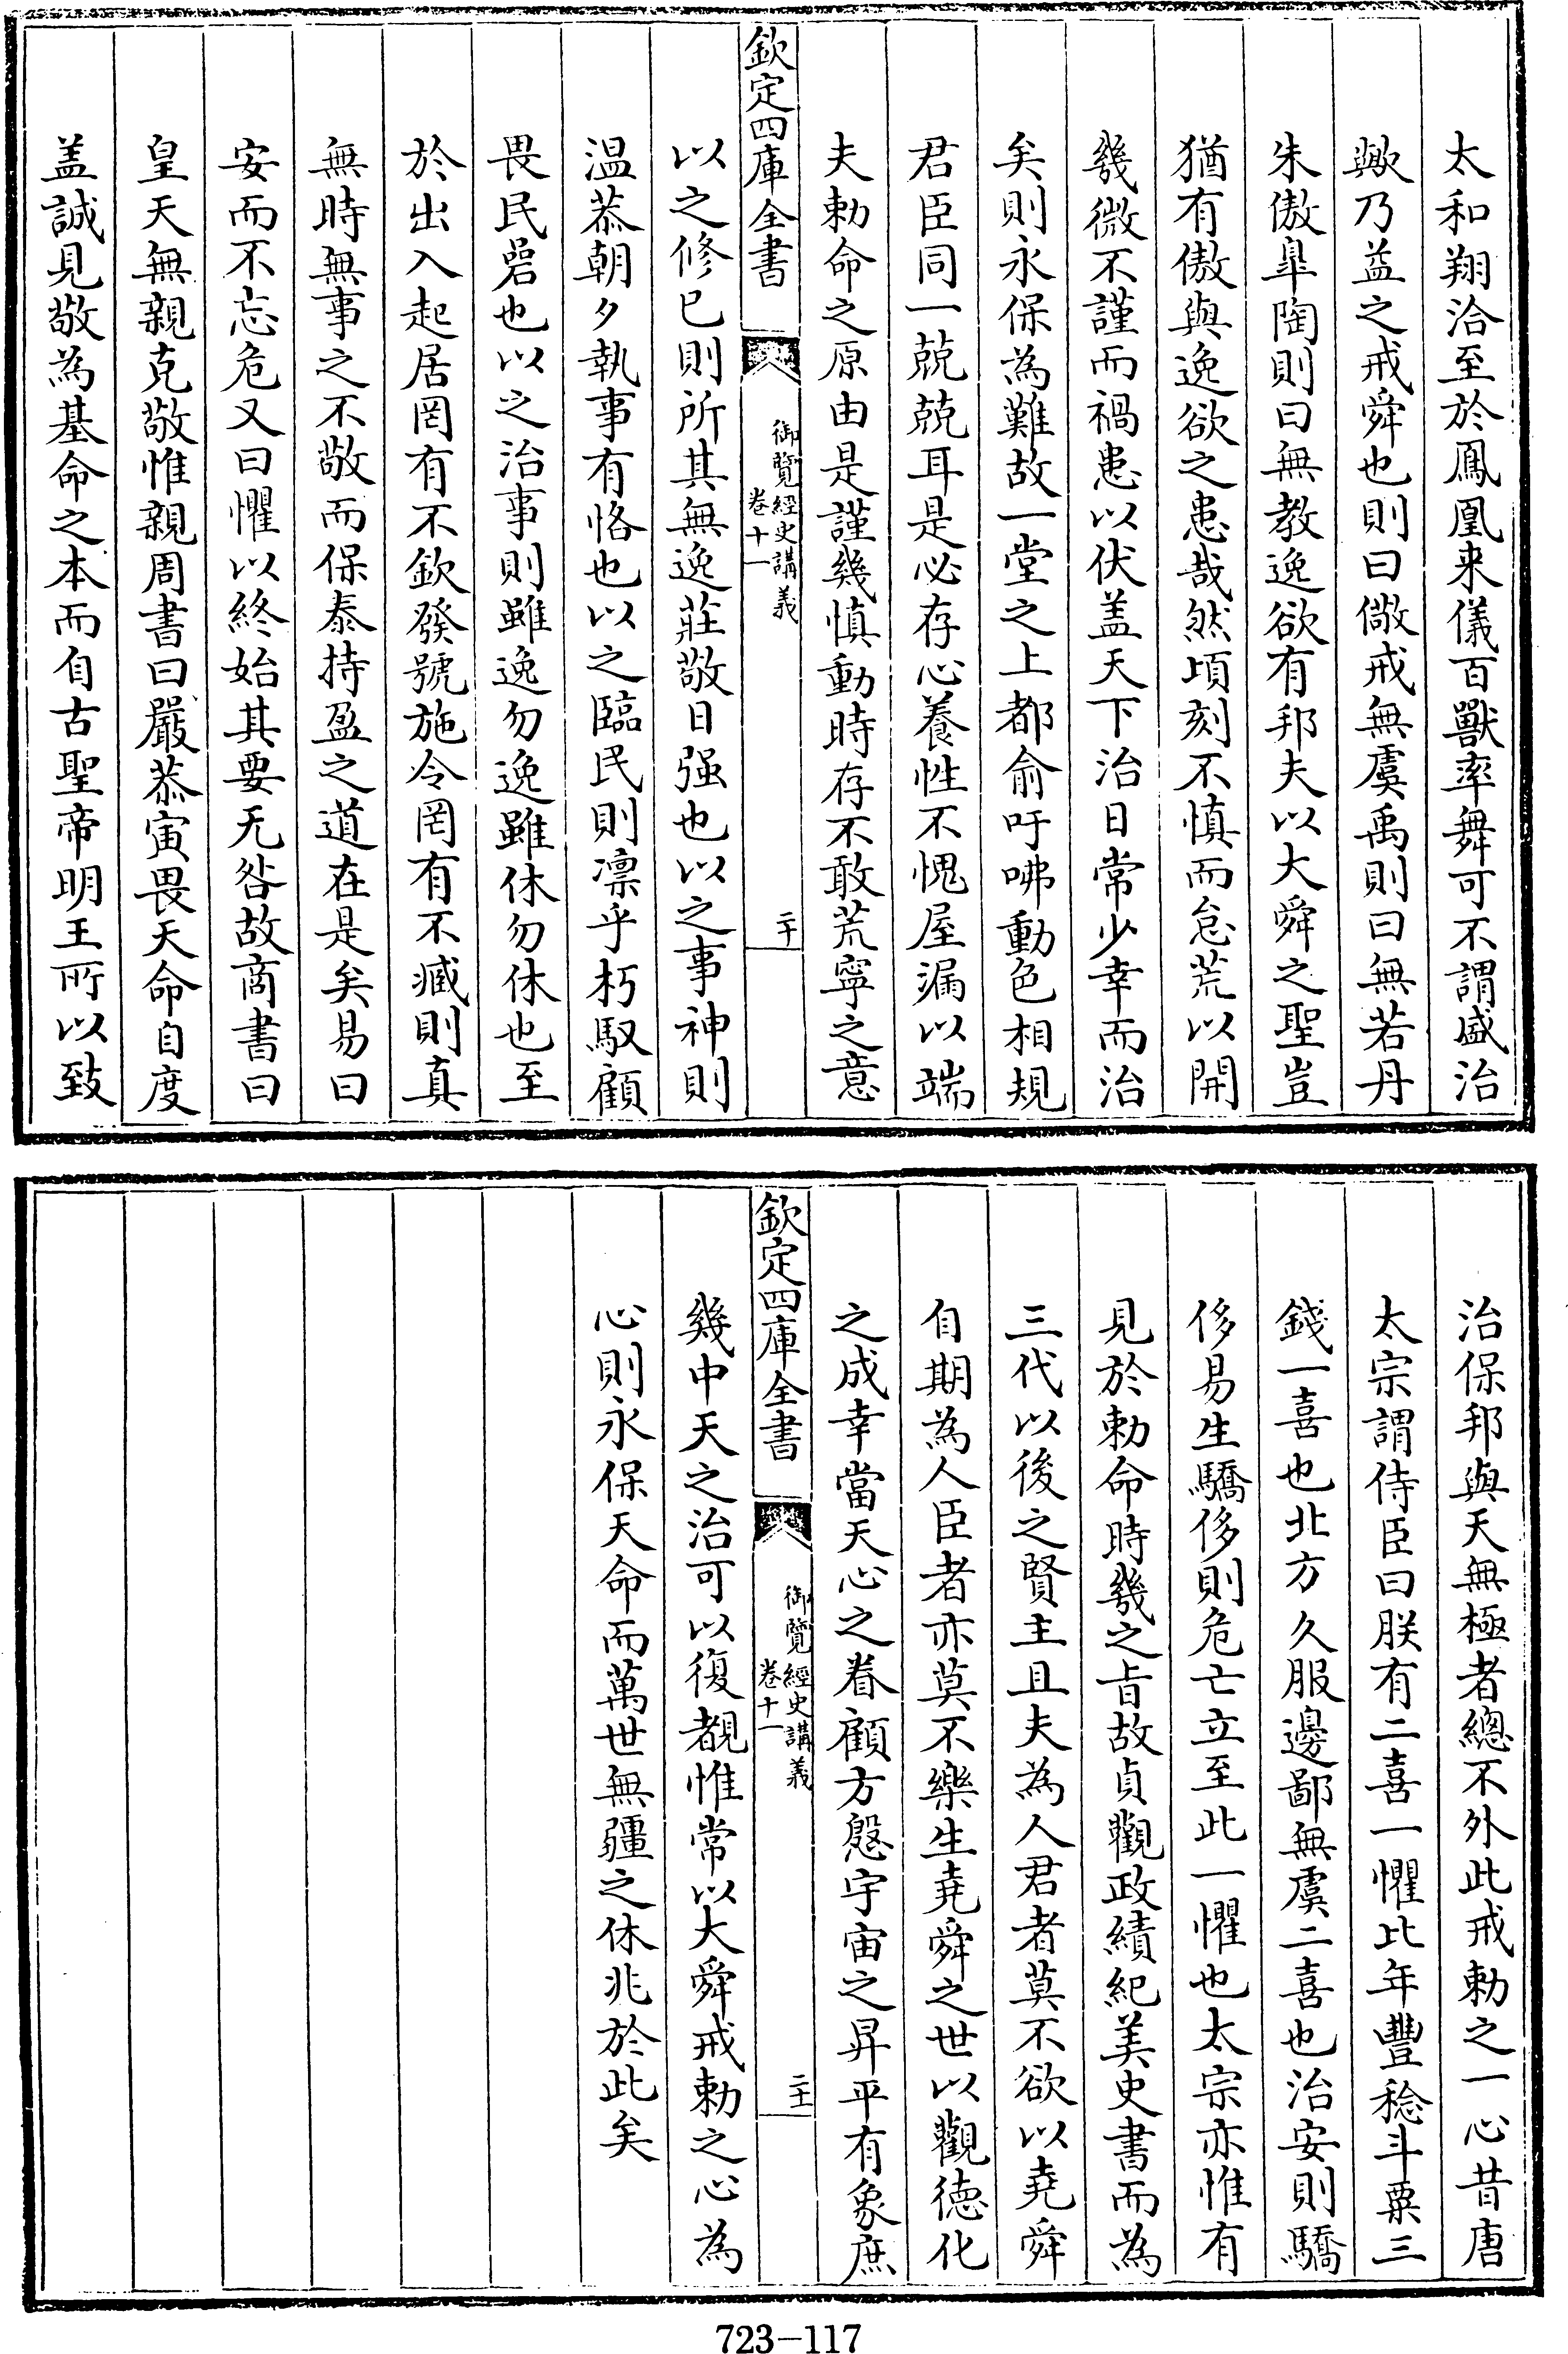 太和翔洽至於鳳凰来儀百獸率舞可不謂盛治
歟乃益之戒舜也則曰儆戒無虞禹則曰無若丹
朱傲臯陶則曰無教逸欲有邦夫以大舜之聖豈
猶有傲與逸欲之患哉然頃刻不慎而怠荒以開
幾微不謹而禍患以伏盖天下治日常少幸而治
矣則永保為難故一堂之上都俞吁咈動色相規
君臣同一兢兢耳是必存心養性不愧屋漏以端
夫勅命之原由是謹幾慎動時存不敢荒寧之意
欽定四庫全書
御覽經史講義
卷十一
二十
以之修已則所其無逸莊敬日强也以之事神則
温恭朝夕執事有恪也以之臨民則凛乎朽馭顧
畏民碞也以之治事則雖逸勿逸雖休勿休也至
於出入起居罔有不欽發號施令罔有不臧則真
無時無事之不敬而保泰持盈之道在是矣易曰
安而不忘危又曰懼以終始其要无咎故商書曰
皇天無親克敬惟親周書曰嚴恭寅畏天命自度
盖誠見敬為基命之本而自古聖帝明王所以致
治保邦與天無極者總不外此戒勅之一心昔唐
太宗謂侍臣曰朕有二喜一懼比年豐稔斗粟三
錢一喜也北方久服邊鄙無虞二喜也治安則驕
侈易生驕侈則危亡立至此一懼也太宗亦惟有
見於勅命時幾之旨故貞觀政績紀美史書而為
三代以後之賢主且夫為人君者莫不欲以堯舜
自期為人臣者亦莫不樂生堯舜之世以觀德化
之成幸當天心之眷顧方慇宇宙之昇平有象庶
欽定四庫全書
御覽經史講義
卷十一
二十一
幾中天之治可以復覩惟常以大舜戒勅之心為
心則永保天命而萬世無疆之休兆於此矣
723-117